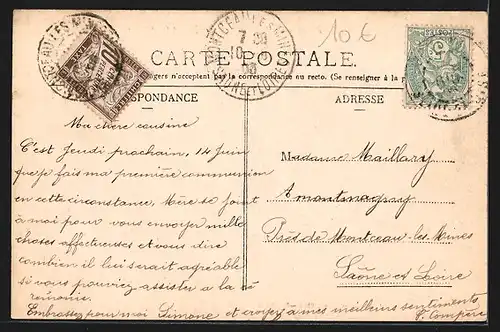 10 €
MONTCEAU LES MINES
7 30
10
SAONE ET LOIRE
CARTE POSTALE
gers n'acceptent pas la correspondance au recto. (Se renseigner à la p
SPONDANCE
ADRESSE
Ma chère cousine
C'est Jeudi prochain, 14 Juin
que je fais ma première communion
en cette circonstance, Mère se joint
à moi pour vous envoyer mille
choses affectueuses et vous dire
combien il lui serait agréable
si vous pouviez assister a la cé
rémonie.
Embrassez pour moi Simone et croyez à mes meilleurs sentiments
Compère
Madame Maillary
à montmagny
Près de Montceau-les-Mines
Saône et Loire